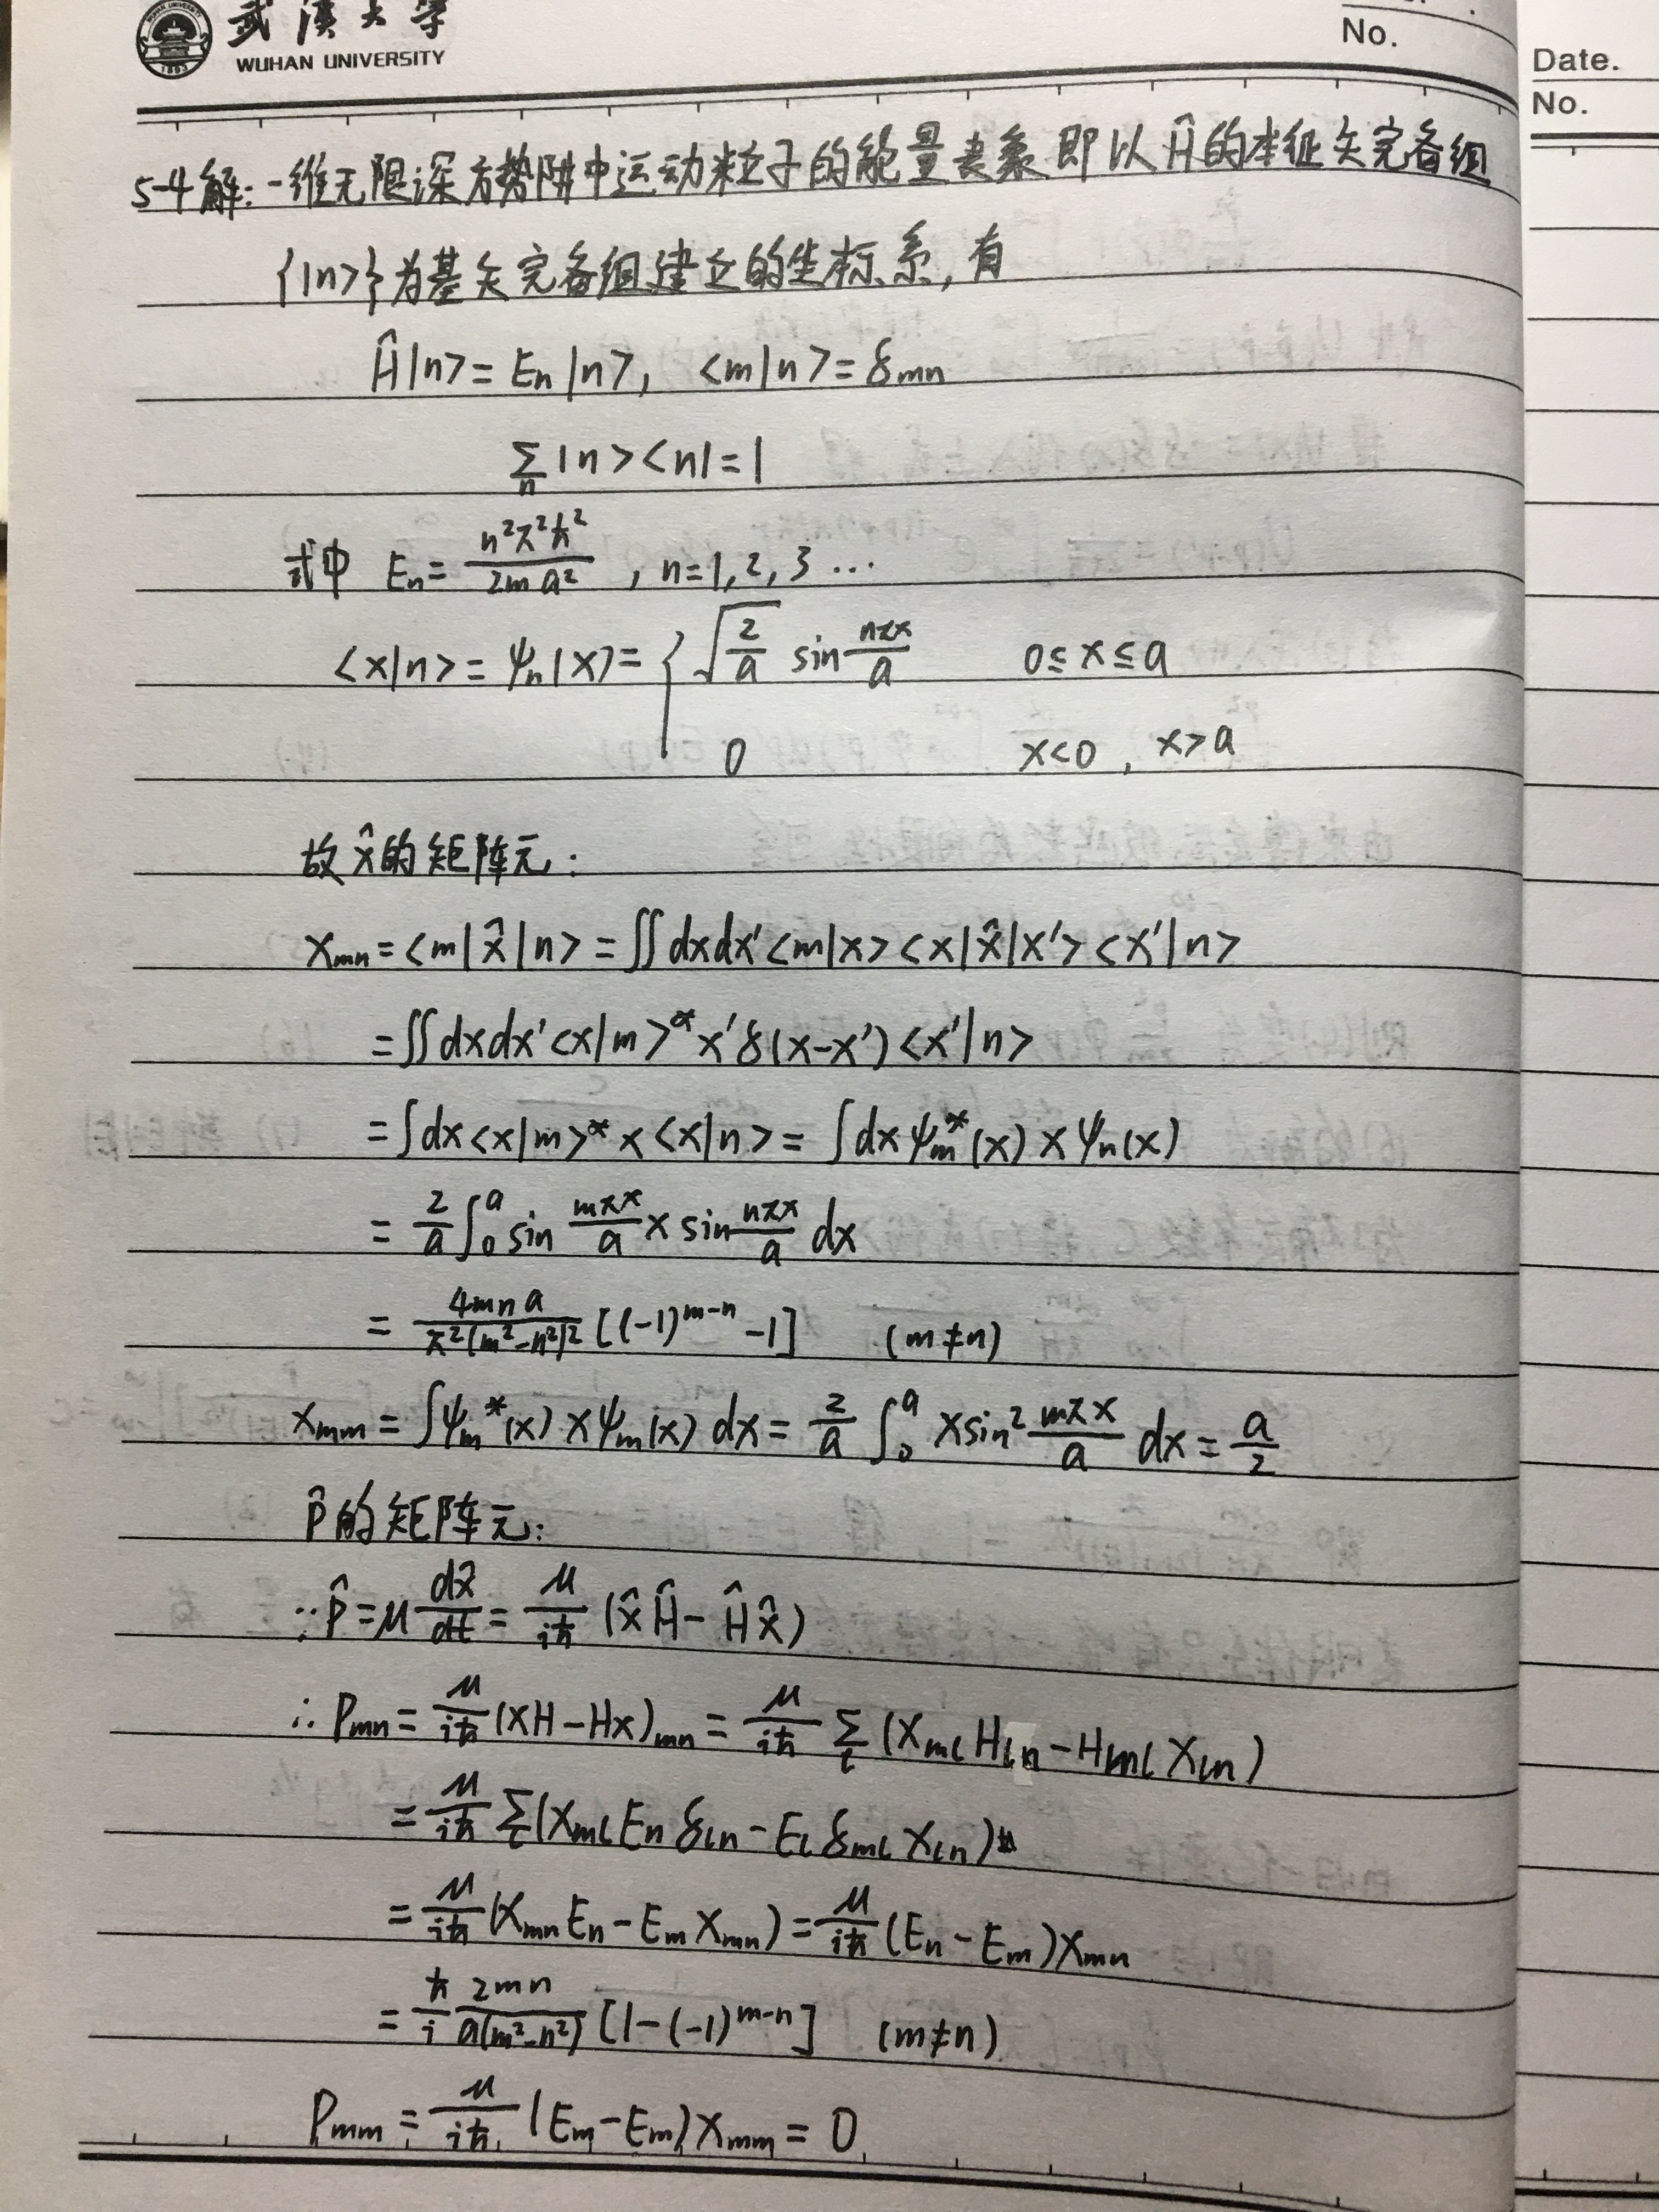 武漢大学
WUHAN UNIVERSITY
No.
Date.
No.
5-4解:一维无限深方势阱中运动粒子的能量表象即以Ĥ的本征矢完备组
{|n>}为基矢完备组建立的坐标系,有
Ĥ|n>=En|n>, <m|n>=δmn
∑n |n><n|=1
式中 En= n²π²ħ²/2ma² , n=1,2,3…
<x|n>=ψn(x)= { √(2/a) sin nπx/a 0≤x≤a
0 x<0 , x>a
故x̂的矩阵元:
xmn=<m|x̂|n>=∬dxdx'<m|x><x|x̂|x'><x'|n>
=∬dxdx'<x|m>*x'δ(x-x')<x'|n>
=∫dx<x|m>*x<x|n>=∫dxψm*(x)xψn(x)
=2/a ∫₀ᵃ sin mπx/a x sin nπx/a dx
=4mna/π²(m²-n²)² [(-1)^(m-n) -1] (m≠n)
xmm=∫ψm*(x)xψm(x)dx=2/a ∫₀ᵃ xsin² mπx/a dx=a/2
p̂的矩阵元:
∵p̂=μ dx̂/dt = μ/iħ (x̂Ĥ-Ĥx̂)
∴Pmn=μ/iħ (xH-Hx)mn=μ/iħ ∑l (xml Hln-Hml xln)
=μ/iħ ∑l (xml En δln-El δml xln)
=μ/iħ (xmn En-Em xmn)=μ/iħ (En-Em)xmn
=ħ/i 2mn/a(m²-n²) [1-(-1)^(m-n)] (m≠n)
Pmm=μ/iħ (Em-Em)xmm=0